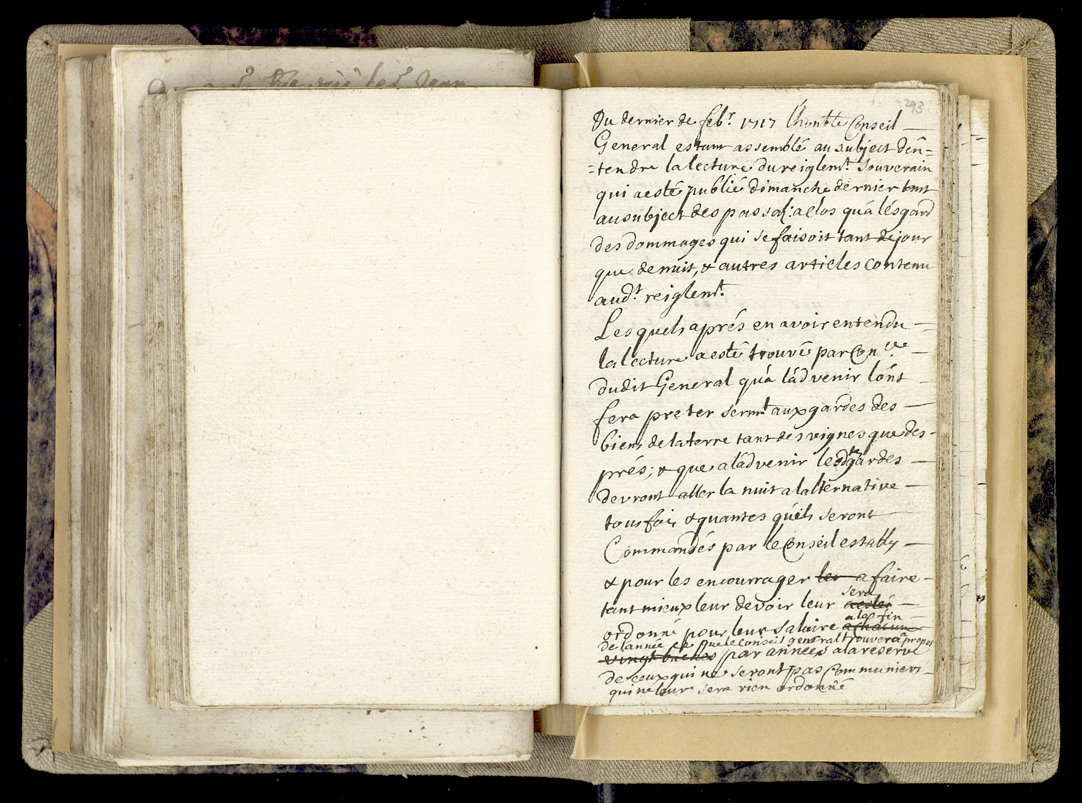 243
Du dernier de febr. 1717 l'honble Conseil
General estant assemblé au subject d'en=
=tendre la lecture du reiglemt. souverain
qui a esté publié dimanche dernier tant
au subject des passa: a clos qu'a l'ésgard
des dommages qui se faisoit tant de jour
que de nuit, & autres articles contenu
audt. reiglemt.
Lesquels aprés en avoir entendu
la lecture a esté trouvé par
dudit General qu'a l'advenir l'on
fera preter sermt aux gardes des
biens de la terre tant des vignes que des
prés; & que a l'advenir lesd. gardes
devront aller la nuit a l'alternative
tous fois & quantes qu'ils seront
Commandés par le Conseil estably
& pour les encourrager les a faire
tant mieux leur devoir leur a esté
sera
ordonné pour leur salaire a chacun
a la fin
de l'année ce que le conseil general trouvera a propos
vingt baches par années a la reserve
de ceux qui ne seront pas Communiers
qui ne leur sera rien ordonné